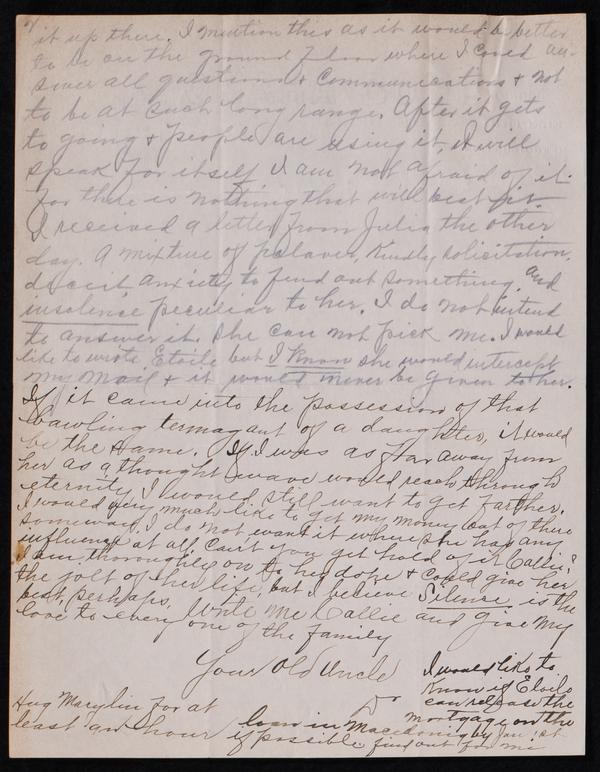 it up there. I mention this as it would be better
to be on the ground floor where I could an-
swer all questions & communications & not
to be at such long range. After it gets
to going & people are using it, it will
speak for itself I am not afraid of it
for there is nothing that will beat it.
I received a letter from Julia the other
day. A mixture of palaver, kindly solicitation,
deceit anxiety to find out something, and
insolence peculiar to her. I do not intend
to answer it. She can not pick me. I would
like to write Etoile but I know she would intercept
my mail & it would never be given to her.
If it came into the possession of that
bawling termagant of a daughter, it would
be the same. If I was as far away from
her as a thought wave would reach through
eternity I would still want to get farther.
I would very much like to get my money out of there
someway. I do not want it where she has any
influence at all can't you get hold of it Callie?
I am thoroughly on to her dope & could give her
the jolt of her life, but I believe Silence is the
best, perhaps. Write me Callie and give my
love to every one of the family
Your Old Uncle
Hug Marylin for at
least an hour
I would like to
know if Etoile
can release the
mortgage on the
loan in Macedonia by Jan 1st
if possible find out for me